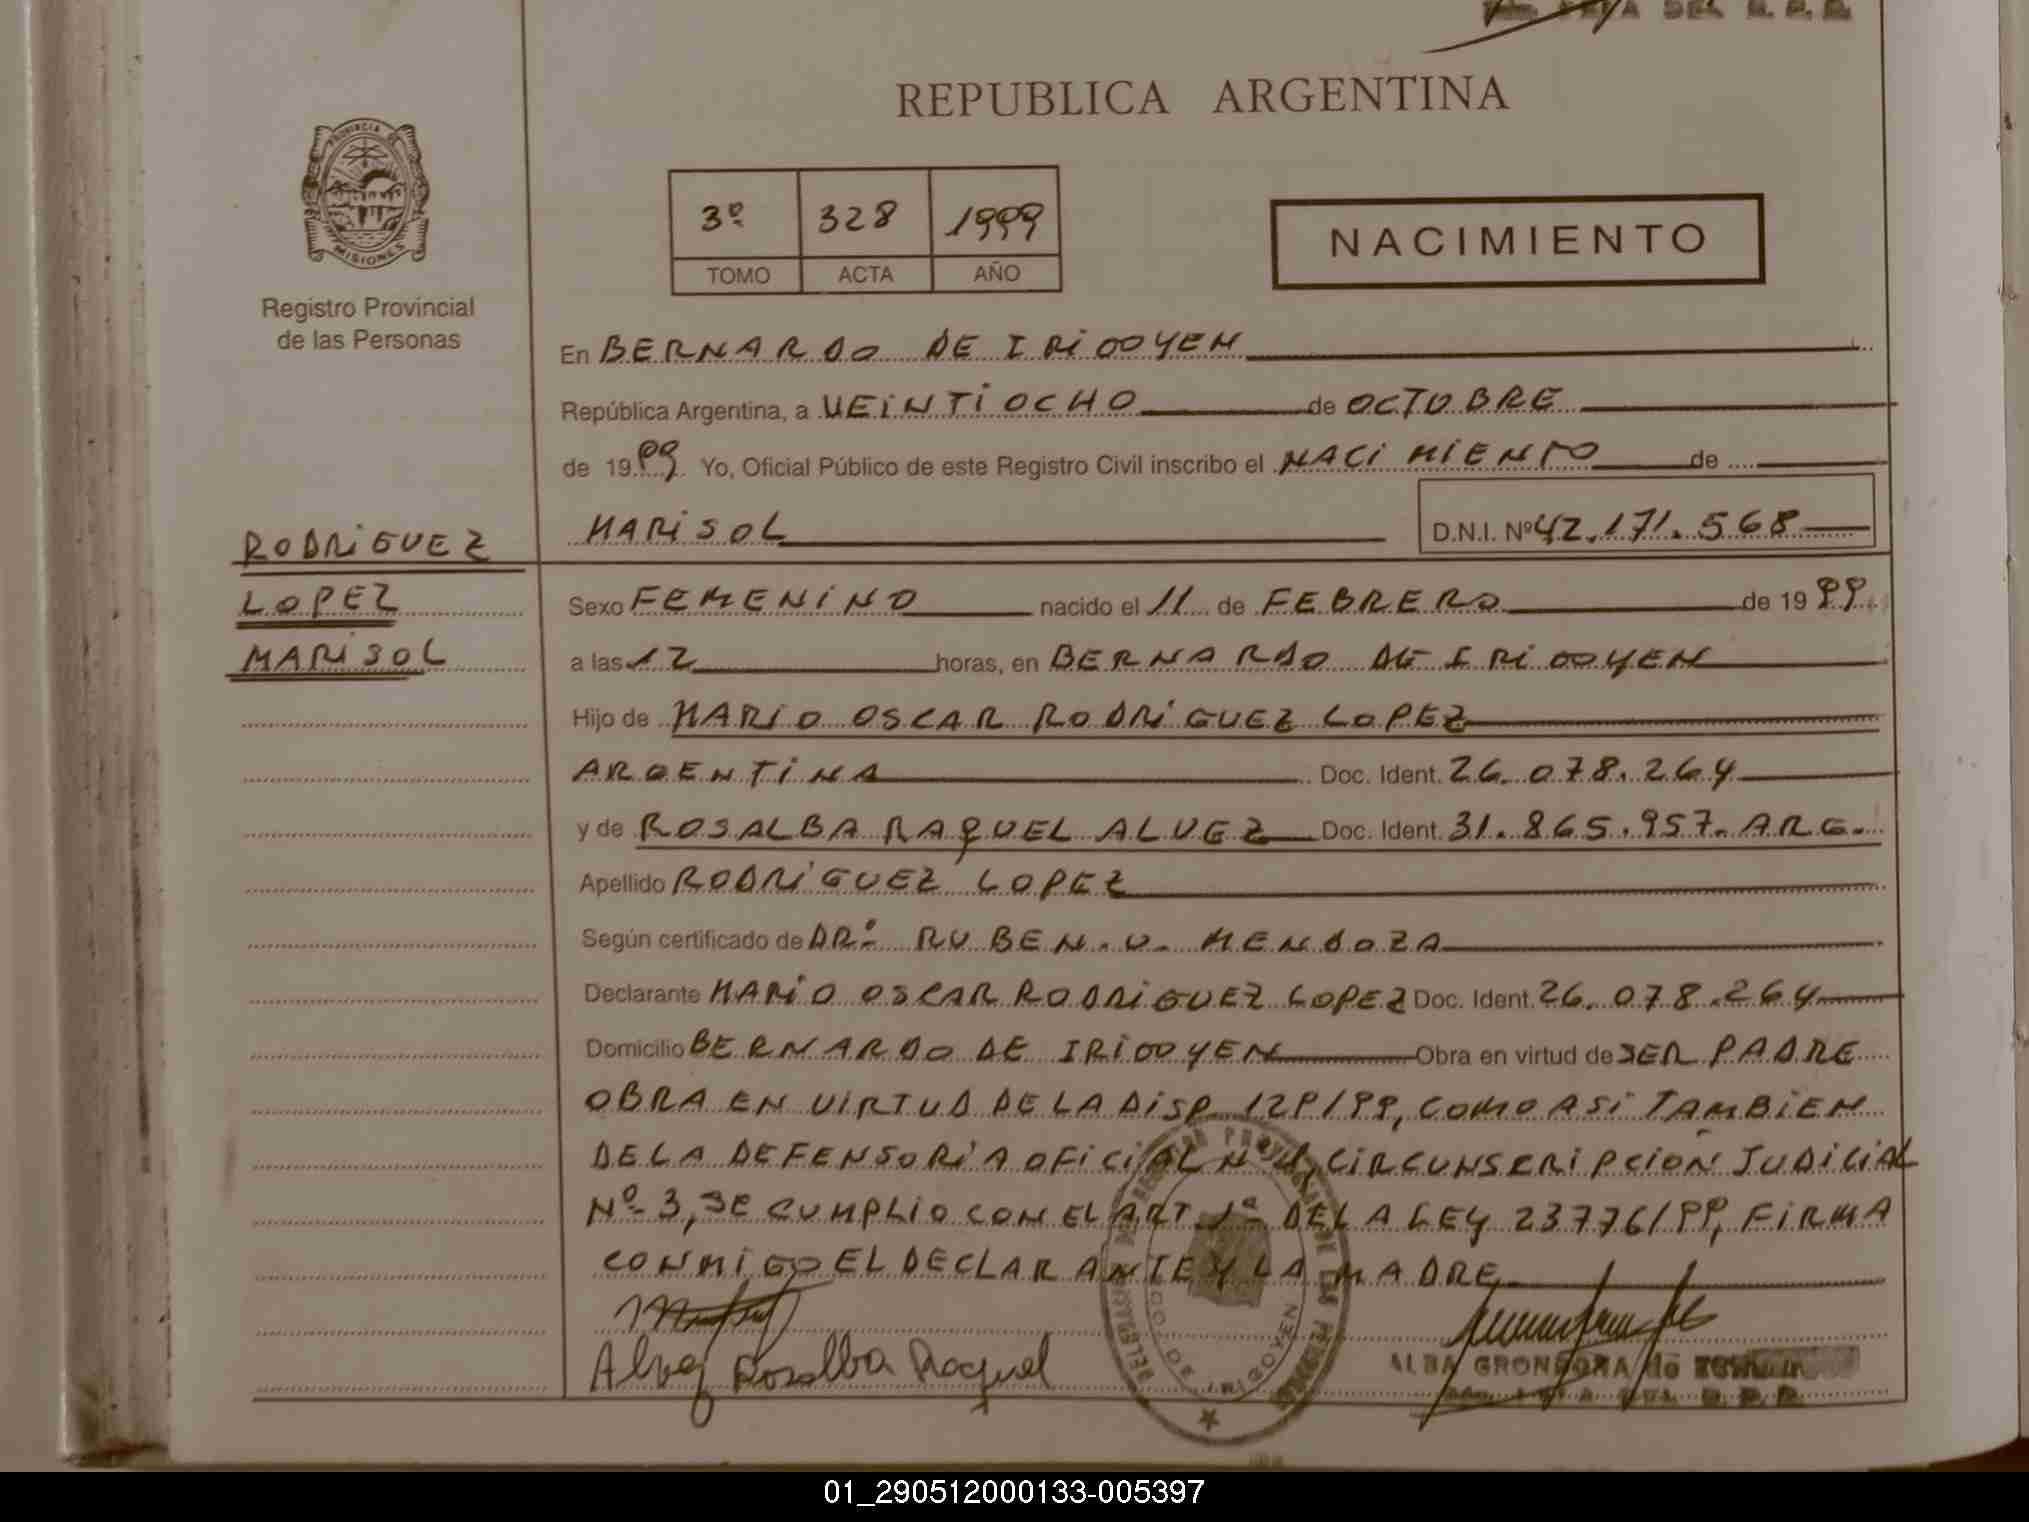 REPUBLICA ARGENTINA
PROVINCIA DE
MISIONES
Registro Provincial
de las Personas
3º 328 1999
TOMO ACTA AÑO
NACIMIENTO
En BERNARDO DE IRIGOYEN
República Argentina, a VEINTIOCHO de OCTUBRE
de 1999 Yo, Oficial Público de este Registro Civil inscribo el NACIMIENTO de
MARISOL D.N.I. Nº 42.171.568
RODRIGUEZ
LOPEZ
MARISOL
Sexo FEMENINO nacido el 11 de FEBRERO de 1999
a las 12 horas, en BERNARDO DE IRIGOYEN
Hijo de MARIO OSCAR RODRIGUEZ LOPEZ
ARGENTINA Doc. Ident. 26.078.264
y de ROSALBA RAQUEL ALVEZ Doc. Ident. 31.865.957. ARG.
Apellido RODRIGUEZ LOPEZ
Según certificado de DR. RUBEN. V. MENDOZA
Declarante MARIO OSCAR RODRIGUEZ LOPEZ Doc. Ident. 26.078.264
Domicilio BERNARDO DE IRIGOYEN Obra en virtud de SER PADRE
OBRA EN VIRTUD DE LA DISP. 129/99, COMO ASI TAMBIEN
DE LA DEFENSORIA OFICIAL Nº CIRCUNSCRIPCION JUDICIAL
Nº 3, SE CUMPLIO CON EL ART. 1ª DE LA LEY 23776/99, FIRMA
CONMIGO EL DECLARANTE Y LA MADRE
Alvez Rosalba Raquel
ALBA GRONDONA de
01_290512000133-005397